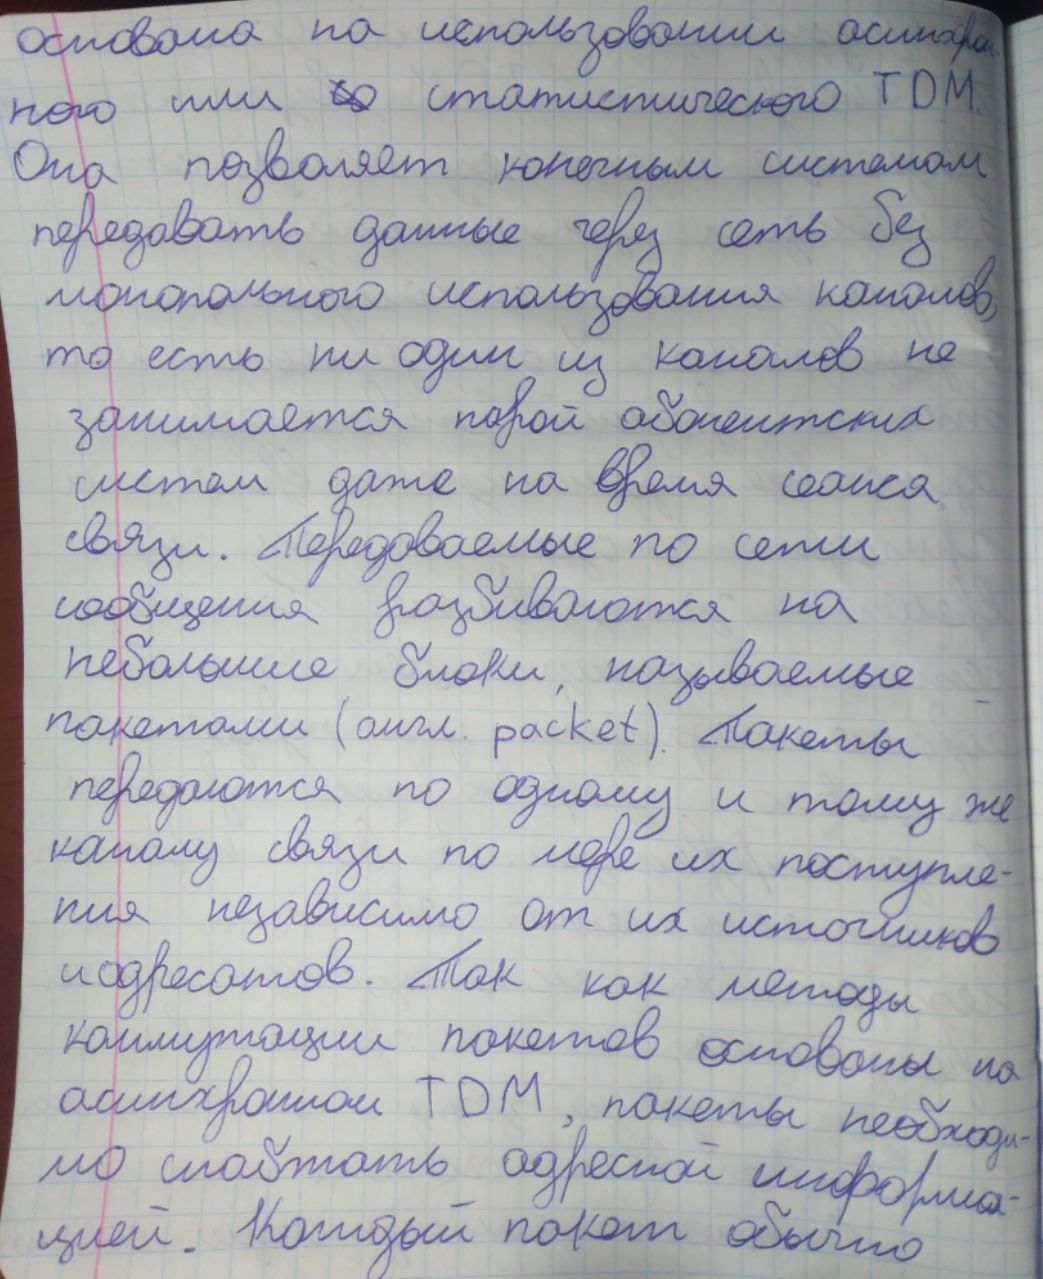 основана на использовании асинхрон-
ного или статистического TDM.
Она позволяет конечным системам
передавать данные через сеть без
монопольного использования каналов,
то есть ни один из каналов не
занимается парой абонентских
систем даже на время сеанса
связи. Передаваемые по сети
сообщения разбиваются на
небольшие блоки, называемые
пакетами (англ. packet). Пакеты
передаются по одному и тому же
каналу связи по мере их поступле-
ния независимо от их источников
и адресатов. Так как методы
коммутации пакетов основаны на
асинхронном TDM, пакеты необходи-
мо снабжать адресной информа-
цией. Каждый пакет обычно